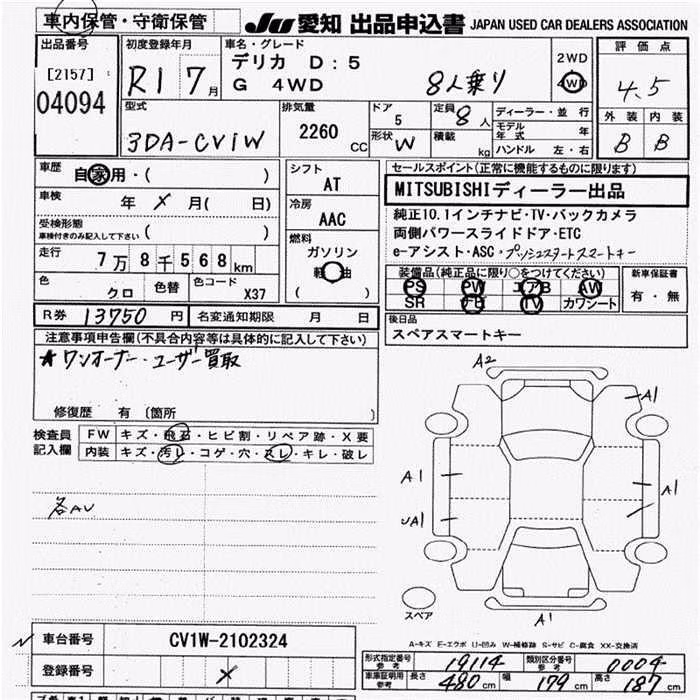 車内保管・守衛保管
JU 愛知 出品申込書 JAPAN USED CAR DEALERS ASSOCIATION
出品番号
[2157]
04094
初度登録年月
R1 7月
車名・グレード
デリカ D:5
G 4WD
8人乗り
2WD
4WD
評価点
4.5
外装 内装
B B
型式
3DA-CV1W
排気量
2260 CC
ドア
5
形状 W
定員 8人
積載 kg
ディーラー・並行
モデル年式 年
ハンドル 左・右
車歴
自家用・( )
車検
年 × 月( 日)
受検形態
車検付きのみ記入して下さい ( )
走行
7万8千568km
色
クロ
色替
色コード
X37
シフト
AT
冷房
AAC
燃料
ガソリン
軽油
( )
セールスポイント(正常に機能するものに限ります)
MITSUBISHIディーラー出品
純正10.1インチナビ・TV・バックカメラ
両側パワースライドドア・ETC
e-アシスト・ASC・プッシュスタートスマートキー
装備品(純正品に限り○をつけてください)
PS PW エアB AW
SR ナビ TV カワシート
新車保証書
有・無
R券 13750円
名変通知期限 月 日
後日品
スペアスマートキー
注意事項申告欄(不具合内容等は具体的に記入して下さい)
★ワンオーナー・ユーザー買取
修復歴 有 〔箇所 〕
検査員
記入欄
FW キズ・飛石・ヒビ割・リペア跡・X要
内装 キズ・汚レ・コゲ・穴・スレ・キレ・破レ
各AU
A2
A1
A1
UA1
A1
A1
スペア
A-キズ E-エクボ U-凹み W-補修跡 S-サビ C-腐食 XX-交換済
車台番号
CV1W-2102324
登録番号
×
形式指定番号
参考
19114
類別区分番号
参考
0004
車庫証明用
参考
長さ 480cm 幅 179cm 高さ 187cm